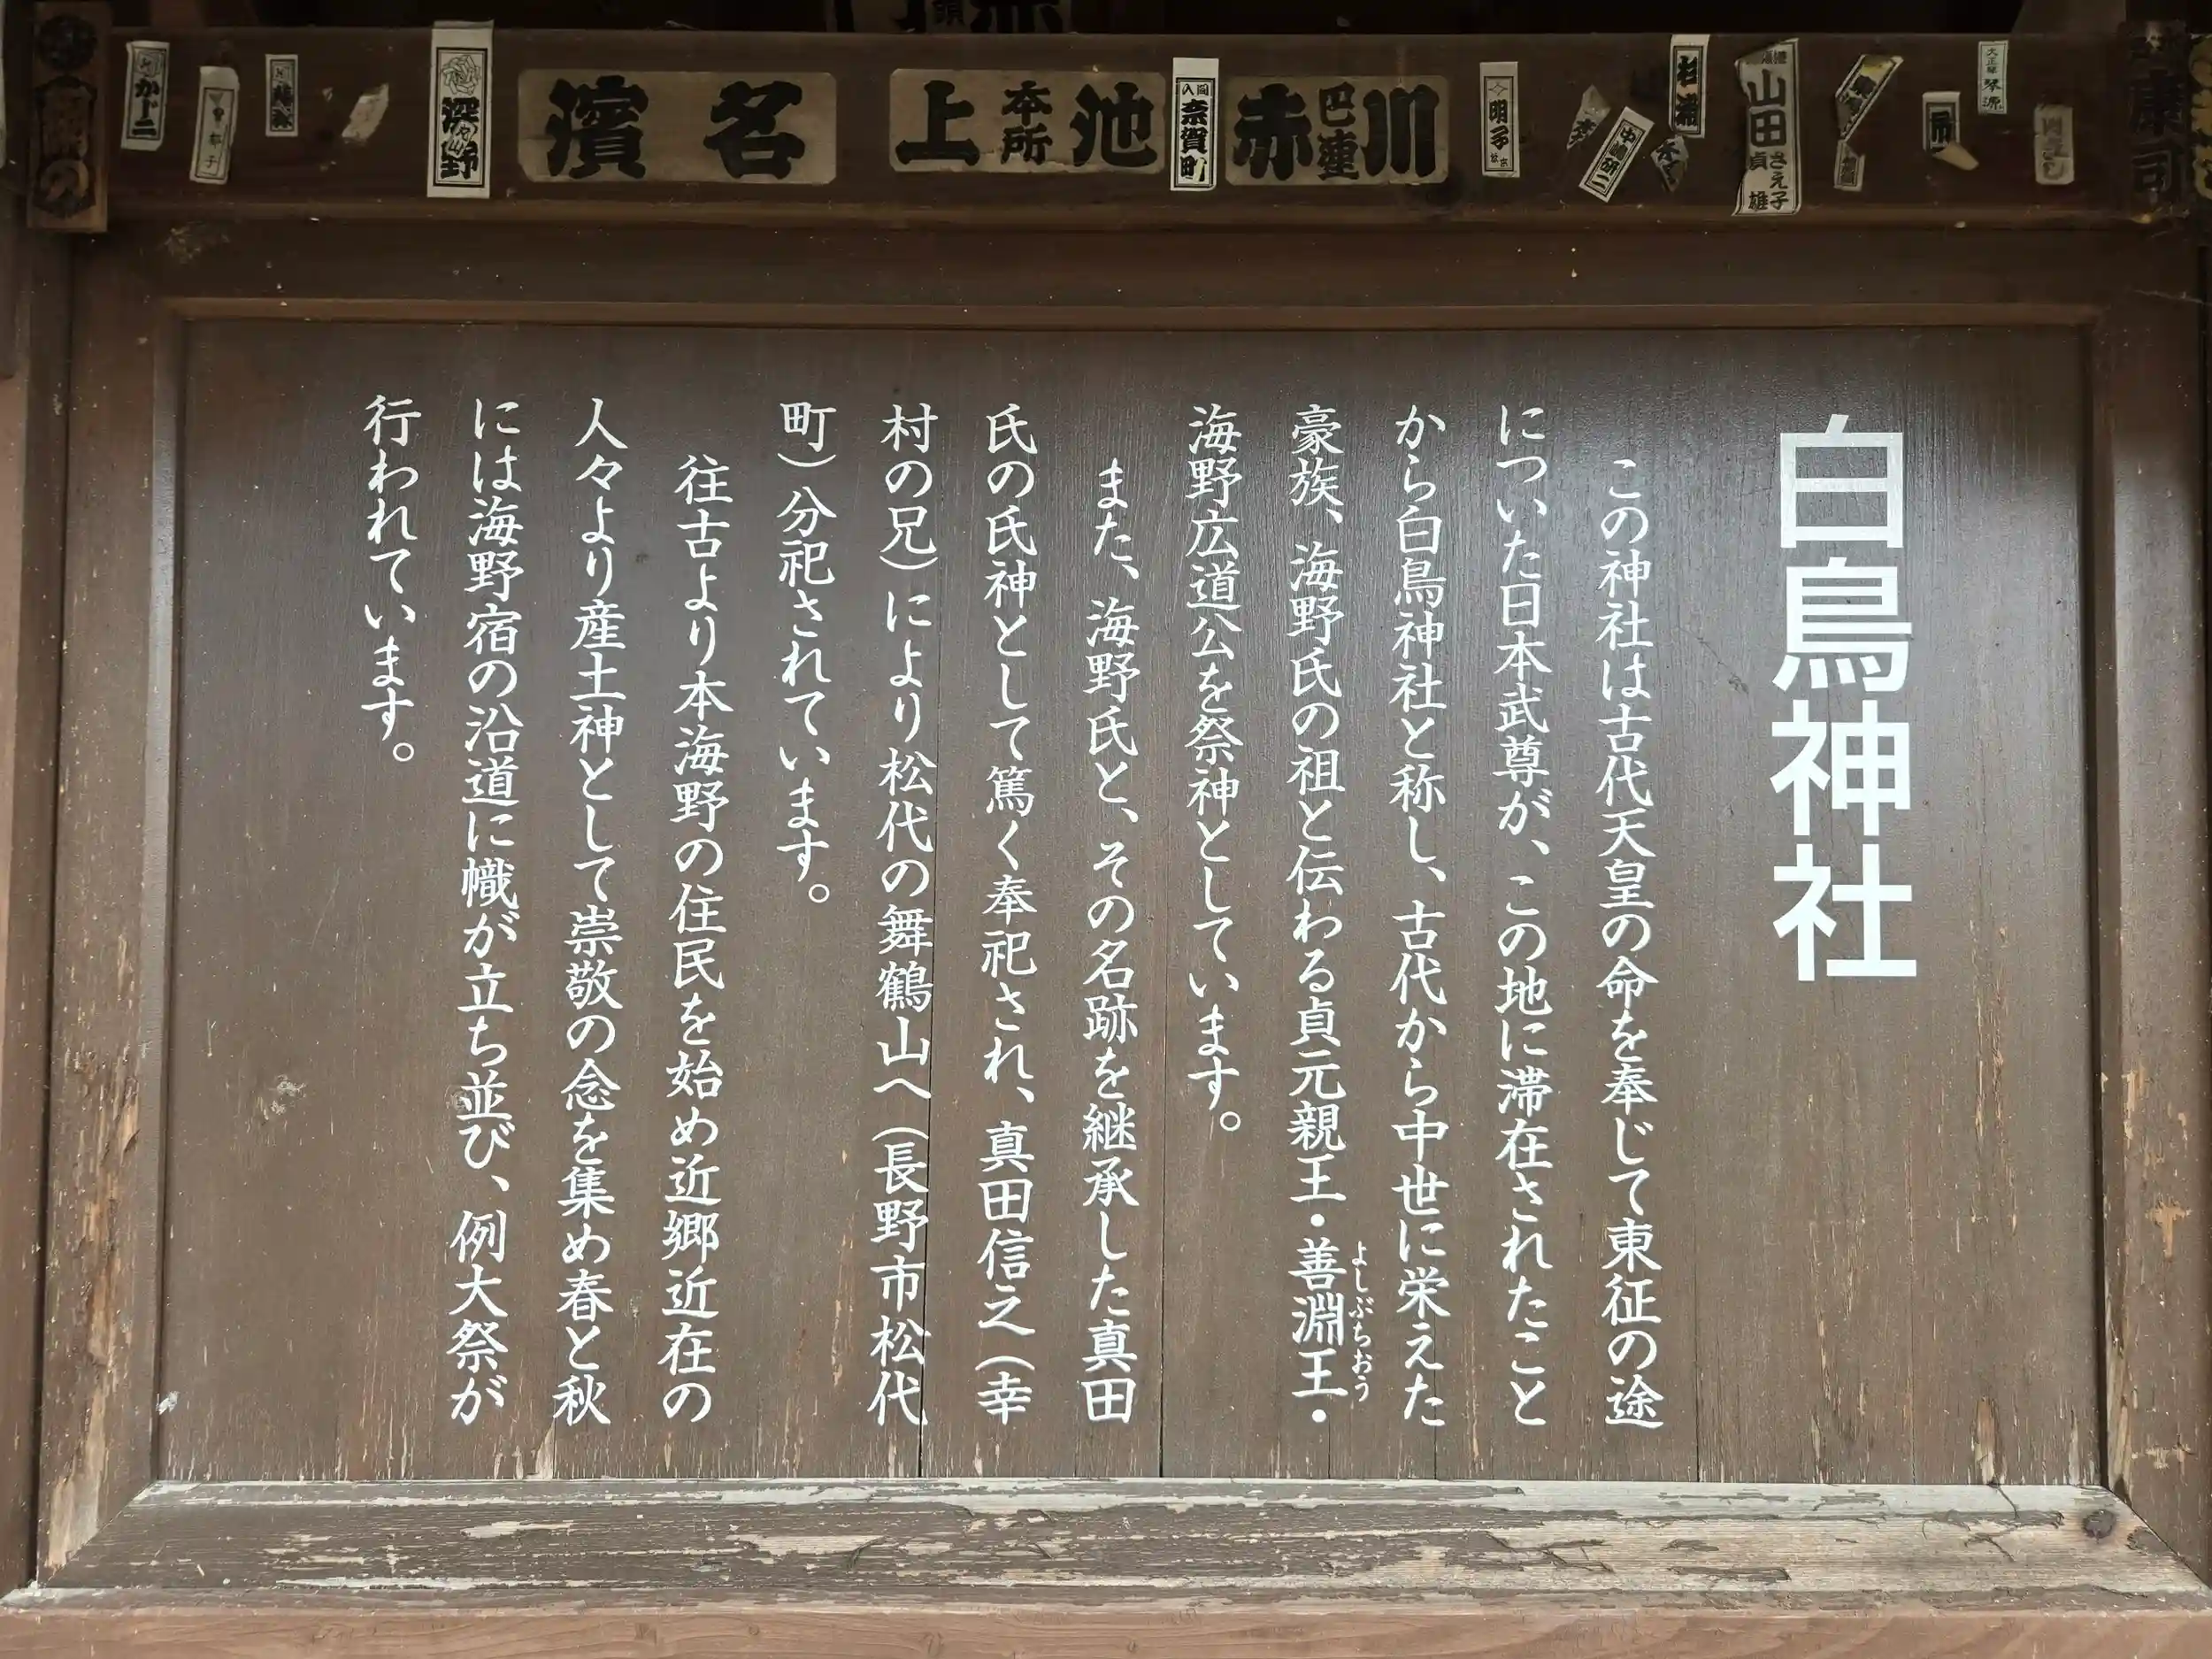 濱名
上
本所
池
入 岡
奈賀町
赤
巴連
川
深野
かに二
明子
中嶋研二
杉浦
山田
さえ子
貞雄
大正琴
琴源
白鳥神社
この神社は古代天皇の命を奉じて東征の途
についた日本武尊が、この地に滞在されたこと
から白鳥神社と称し、古代から中世に栄えた
豪族、海野氏の祖と伝わる貞元親王・善淵王・
よしぶちおう
海野広道公を祭神としています。
また、海野氏と、その名跡を継承した真田
氏の氏神として篤く奉祀され、真田信之(幸
村の兄)により松代の舞鶴山へ(長野市松代
町)分祀されています。
往古より本海野の住民を始め近郷近在の
人々より産土神として崇敬の念を集め春と秋
には海野宿の沿道に幟が立ち並び、例大祭が
行われています。